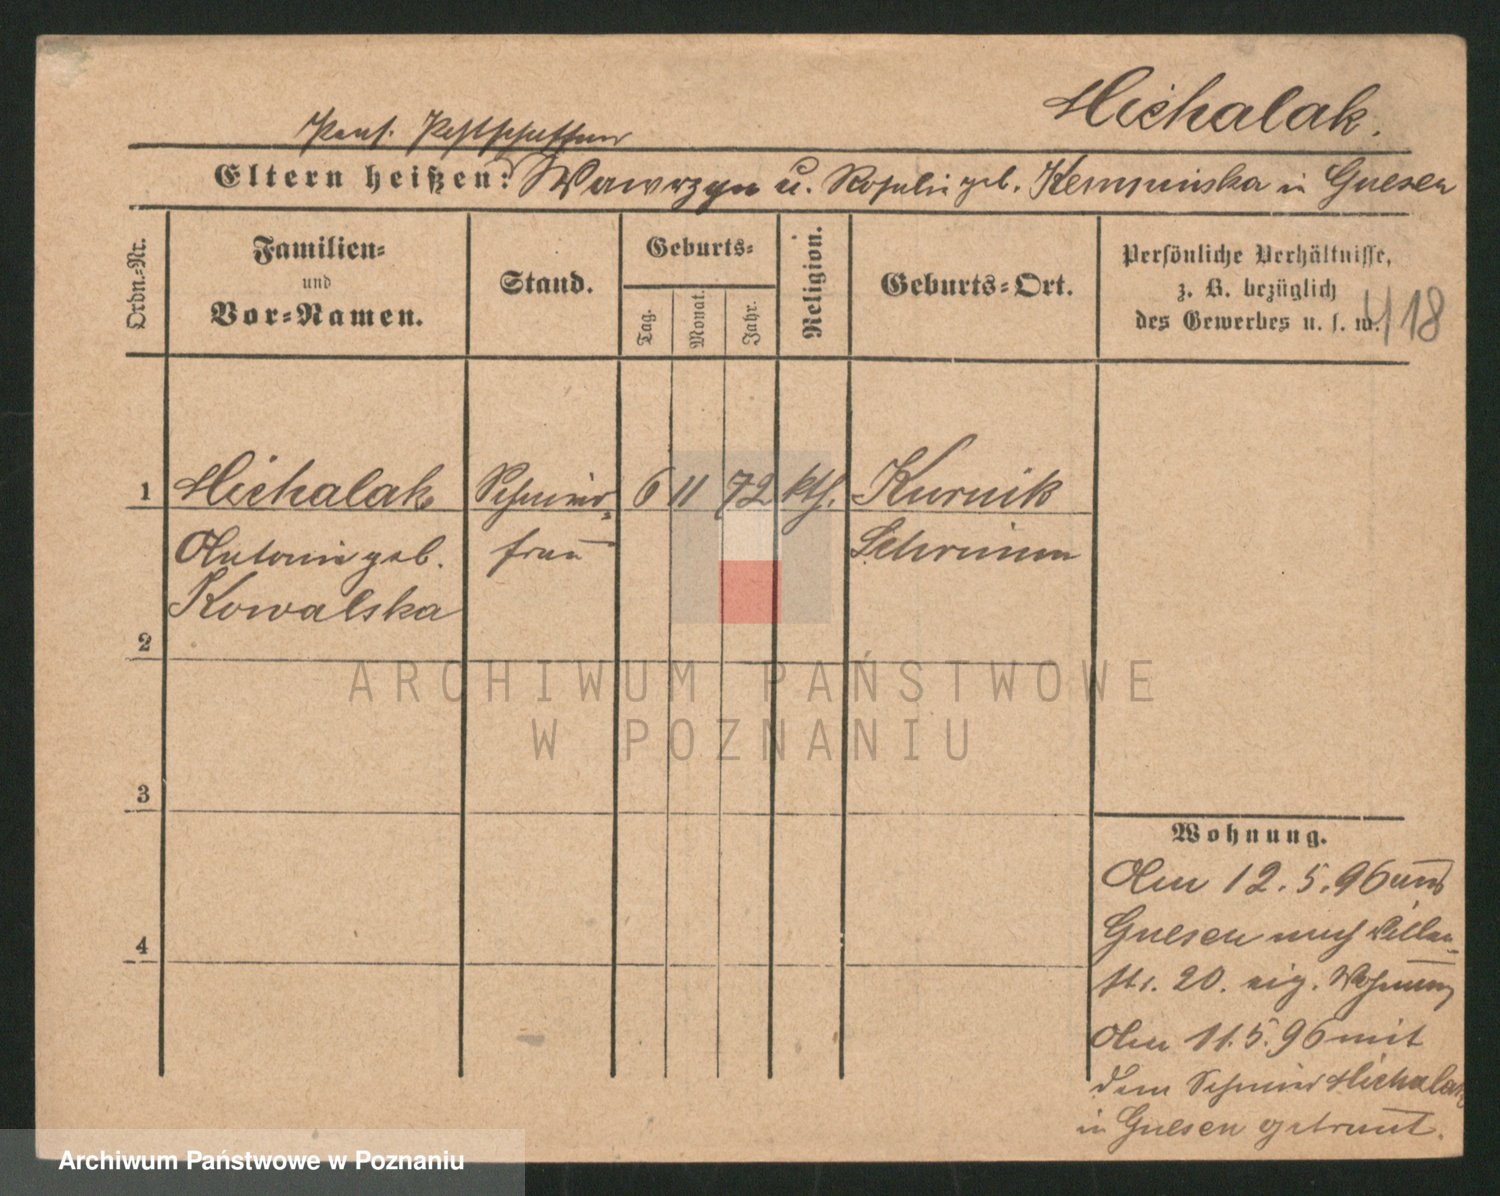 Michalak.
Eltern heißen: Wawrzyn u. Rosalie geb. Kempinska in Gnesen
Ordn.-Nr.
Familien-
und
Vor-Namen.
Stand.
Geburts-
Tag.
Monat.
Jahr.
Religion.
Geburts-Ort.
Persönliche Verhältnisse,
z. B. bezüglich
des Gewerbes u. s. w.
418
1 Michalak Schmied- 6 11 72 kth. Kurnik
Antonie geb. frau Schrimm
Kowalska
2
3
4
Wohnung.
Am 12.5.96 aus
Gnesen nach
str. 20. eig. Wohnung
Am 11.5.96 mit
dem Schmied Michalak
in Gnesen getraut.
ARCHIWUM PAŃSTWOWE
W POZNANIU
Archiwum Państwowe w Poznaniu